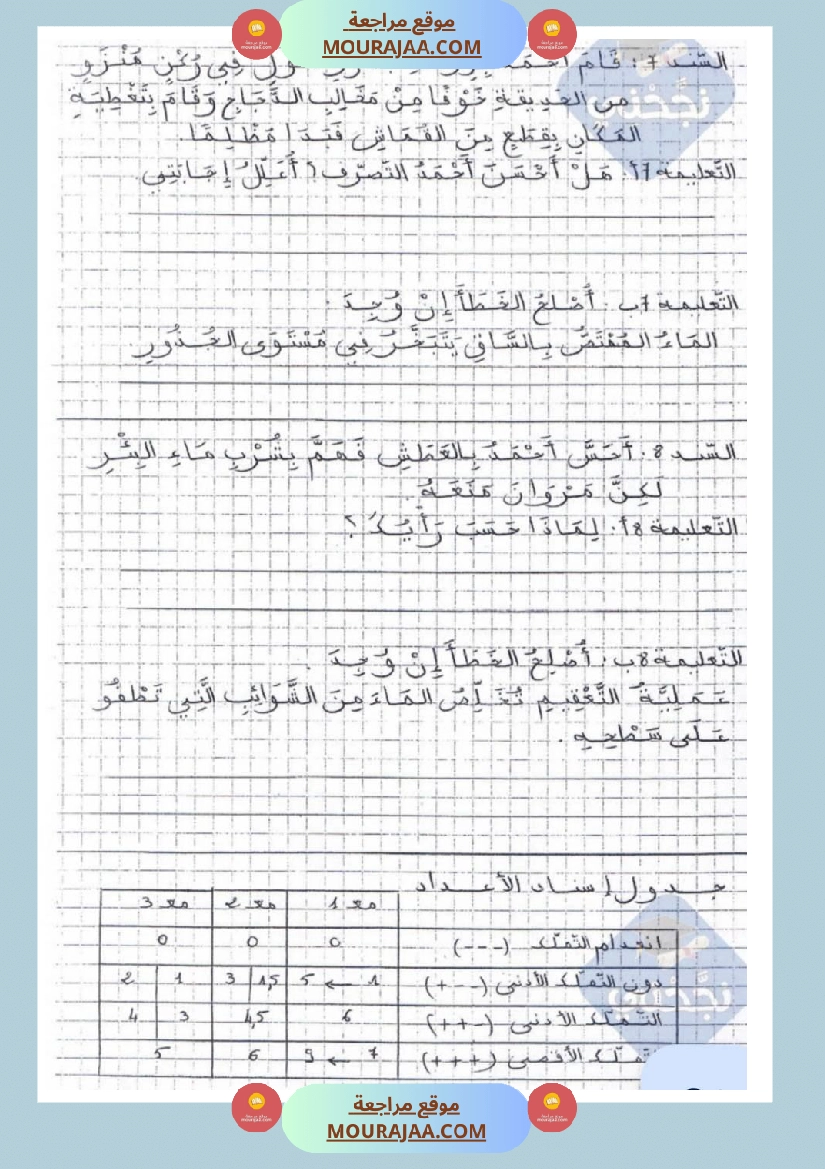 موقع مراجعة
MOURAJAA.COM
السّند 7 : قَامَ أَحْمَدُ فِي رُكْنٍ مُنْزَوٍ
من الحَدِيقَةِ خَوْفًا مِنْ مَخَالِبِ الدَّجَاجِ وَقَامَ بِتَغْطِيَةِ
المَكَانِ بِقِطَعٍ مِنَ القُمَاشِ فَبَدَا مُظْلِمًا.
التّعليمة 7أ: هَلْ أَحْسَنَ أَحْمَدُ التَصَرّف؟ أُعَلِّلُ إِجَابَتِي.
نجّحني
التّعليمة 7ب : أُصْلِحُ الخَطَأَ إِنْ وُجِدَ .
المَاءُ المُمْتَصُّ بِالسَّاقِ يَتَبَخَّرُ فِي مُسْتَوَى الجُذُورِ
السّند 8: أَحَسَّ أَحْمَدُ بِالعَطَشِ فَهَمَّ بِشُرْبِ مَاءِ البِئْرِ
لَكِنَّ مَرْوَانَ مَنَعَهُ .
التّعليمة 8أ: لِمَاذَا حَسَبَ رَأْيِكَ ؟
التّعليمة 8ب : أُصْلِحُ الخَطَأَ إِنْ وُجِدَ .
عَمَلِيَّةُ التَّعْقِيمِ تُخَلِّصُ المَاءَ مِنَ الشَّوَائِبِ الَّتِي تَطْفُو
عَلَى سَطْحِهِ .
جدول إسناد الأعداد
مع 1 مع 2 مع 3
انعدام التملّك (---) 0 0 0
دون التملّك الأدنى (+--) 1 ← 5 1,5 3 1 2
التملّك الأدنى (++-) 6 4,5 3 4
التملّك الأقصى (+++) 7 ← 9 6 5
نجّحني
موقع مراجعة
MOURAJAA.COM